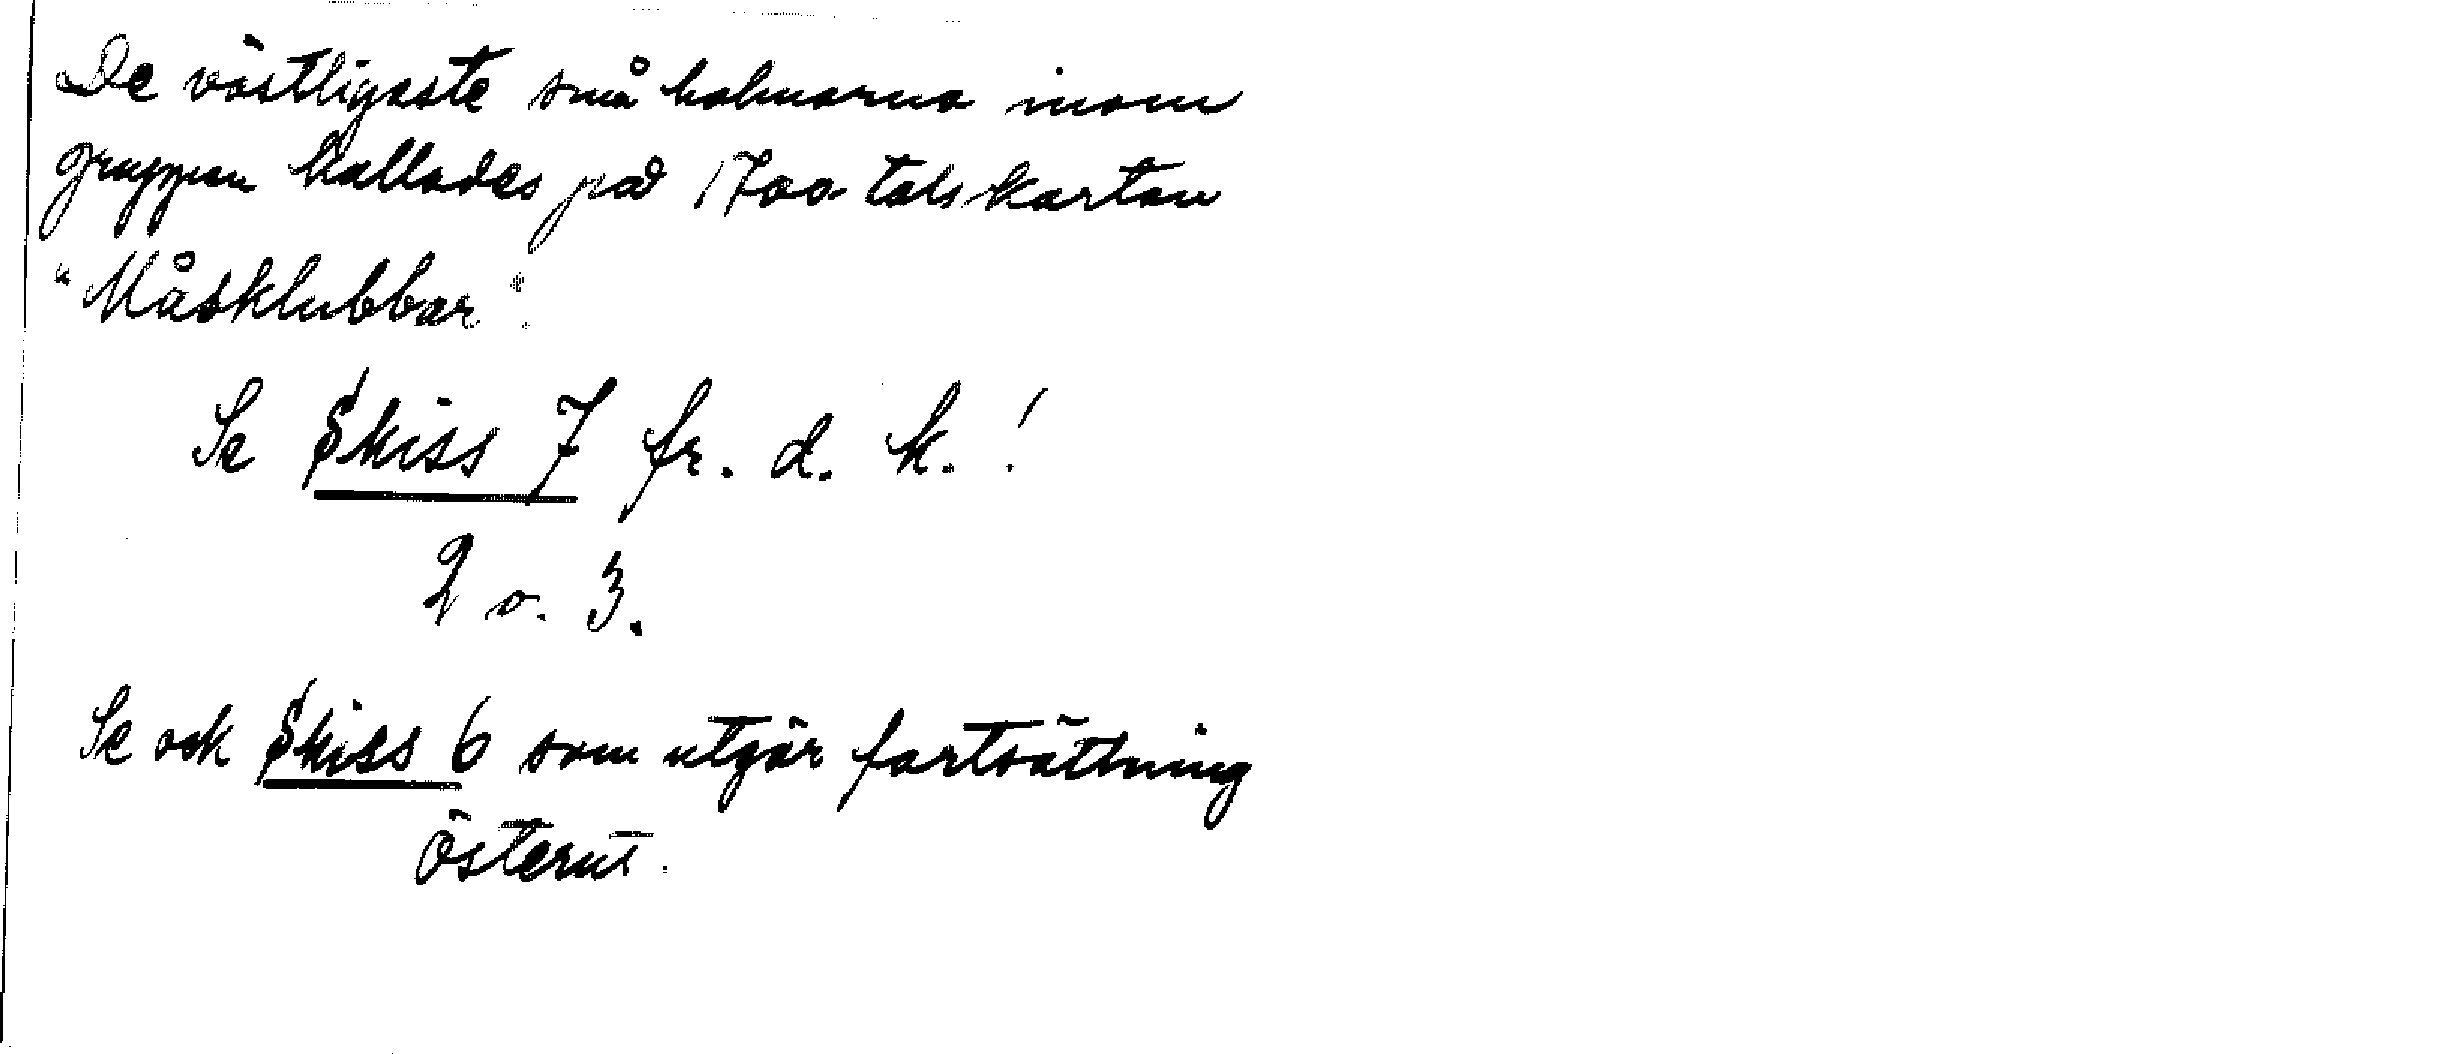 De västligaste små holmarna inom
gruppen kallades på 1700 talskartan
"Måsklubbar".
Se Skiss 7 fr. d. k.!
2 o. 3.
Se ock Skiss 6 som utgör fortsättning
österut.